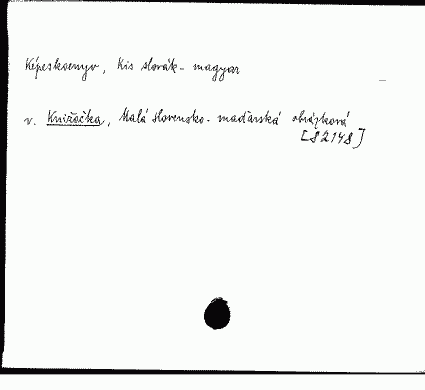 Képeskoenyv, Kis slovák - magyar
v. Knižočka, Malá slovensko - maďarská obrázková
[S 2148]